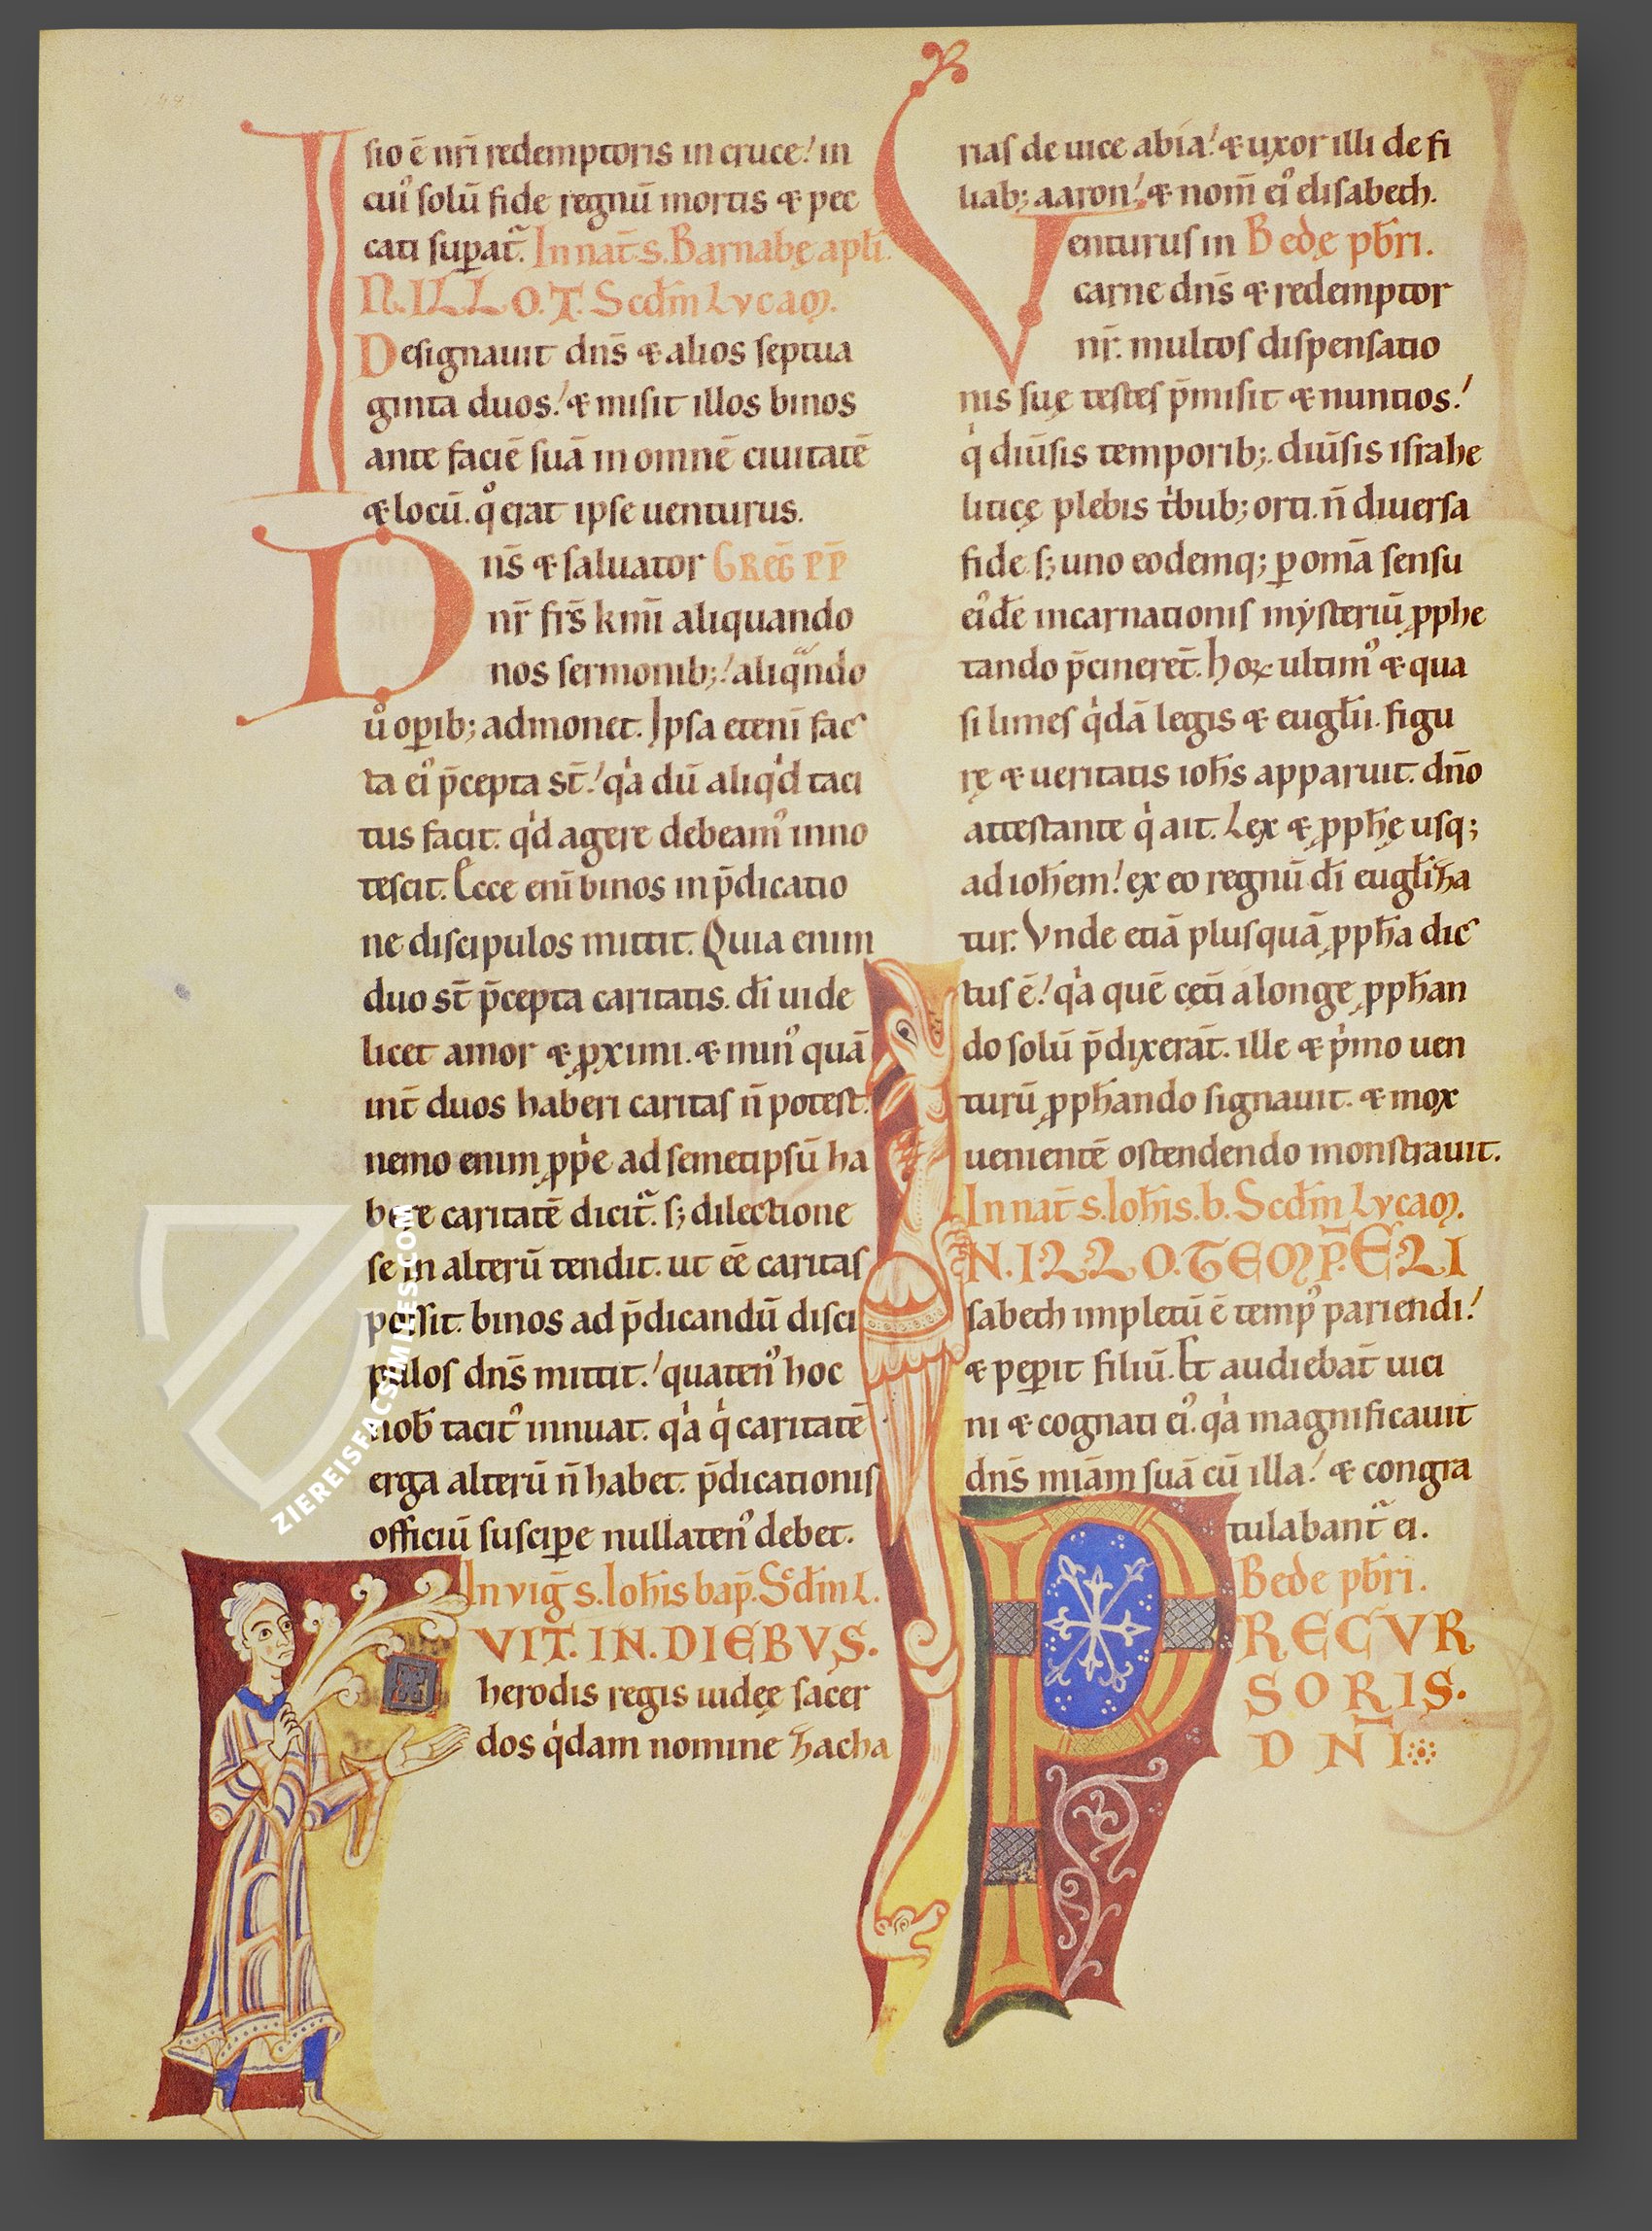 sio ē nr̄i redemptoris in cruce! in
cuiꝰ solū fide regnū mortis & pec
cati supat̄. In nat̄ s. Barnabę apłi.
N. ILLO. T. Scđm Lvcam.
Designauit dn̄s & alios septua
ginta duos! & misit illos binos
ante faciē suā in omnē ciuitatē
& locū. qͦ erat ipse uenturus.
Dn̄s & saluator GREḠ PP̄
nr̄ fr̄s km̄i aliquando
nos sermonib;! aliqͣndo
uͦ opib; admonet. Ipsa eteni fac
ta eiꝰ p̄cepta st̄! qͥa dū aliqͥd taci
tus facit. qͥd agere debeamꝰ inno
tescit. Ecce eni binos in p̄dicatio
ne discipulos mittit. Quia enim
duo st̄ p̄cepta caritatis. dī uide
licet amor & ꝓximi. & minꝰ quā
int̄ duos haberi caritas n̄ potest.
nemo enim ꝓpͥe ad semetipsū ha
bere caritatē dicit̄. s; dilectione
se in alterū tendit. ut ēē caritas
possit. binos ad p̄dicandū disci
pulos dn̄s mittit! quatenꝰ hoc
nob̄ tacitꝰ innuat. qͥa qͥ caritatē
erga alterū n̄ habet. p̄dicationis
officiū suscipe nullatenꝰ debet.
In viḡ s. Ioħis bap̄. Scđm L.
FVIT. IN. DIEBVS.
herodis regis iudęę sacer
dos qͥdam nomine zacha
rias de uice abia! & uxor illi de fi
liab; aaron! & nom̄ eiꝰ elisabeth.
Venturus in Bedę pb̄ri.
carne dn̄s & redemptor
nr̄. multos dispensatio
nis suę testes p̄misit & nuntios!
qͥ diūsis temporib;. diūsis israhe
liticę plebis tͥbub; orti. n̄ diuersa
fide s; uno eodemq; ꝑ omā sensu
eiꝰdē incarnationis mysteriū ꝓphe
tando p̄cineret̄. hoꝝ ultimꝰ & qua
si limes qͥdā legis & eugłii. figu
rę & ueritatis ioħs apparuit. dn̄o
attestante qͥ ait. Lex & ꝓpħę usq;
ad ioħem! ex eo regnū dī eugłiza
tur. Vnde etiā plusquā ꝓpħa dic
tus ē! qͥa quē cęti a longe ꝓpħan
do solū p̄dixerāt. ille & pͥmo uen
turū ꝓpħando signauit. & mox
uenientē ostendendo monstrauit.
In nat̄ s. Ioħis. b. Scđm Lvcam.
IN. ILLO. TEMP̄. ELI
sabeth impletū ē tempꝰ pariendi!
& pepit filiū. Et audiebāt uici
ni & cognati eiꝰ. qͥa magnificauit
dn̄s miām suā cū illa! & congra
tulabant̄ ei.
Bede pb̄ri.
PRECVR
SORIS.
DN̄I
ZIEREISFACSIMILES.COM